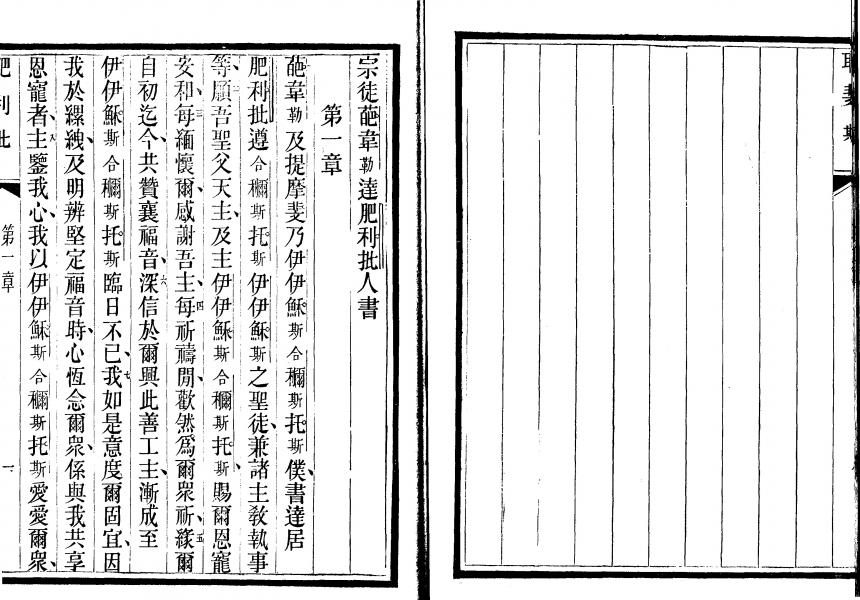 耶斐斯
宗徒葩韋勒達肥利批人書
第一章
葩韋勒及提摩斐乃伊伊穌斯合穪斯托斯僕書達居
肥利批遵合穪斯托斯伊伊穌斯之聖徒、兼諸主教執事
等、二願吾聖父天主、及主伊伊穌斯合穪斯托斯、賜爾恩寵
安和、三每緬懷爾、感謝吾主、四每祈禱閒、歡然爲爾眾祈、五緣爾
自初迄今、共贊襄福音、六深信於爾興此善工主、漸成至
伊伊穌斯合穪斯托斯臨日不已、七我如是意度爾固宜、因
我於縲絏、及明辨堅定福音時、心恆念爾眾、係與我共享
恩寵者、八主鑒我心、我以伊伊穌斯合穪斯托斯愛愛爾眾、
肥利批
第一章
一